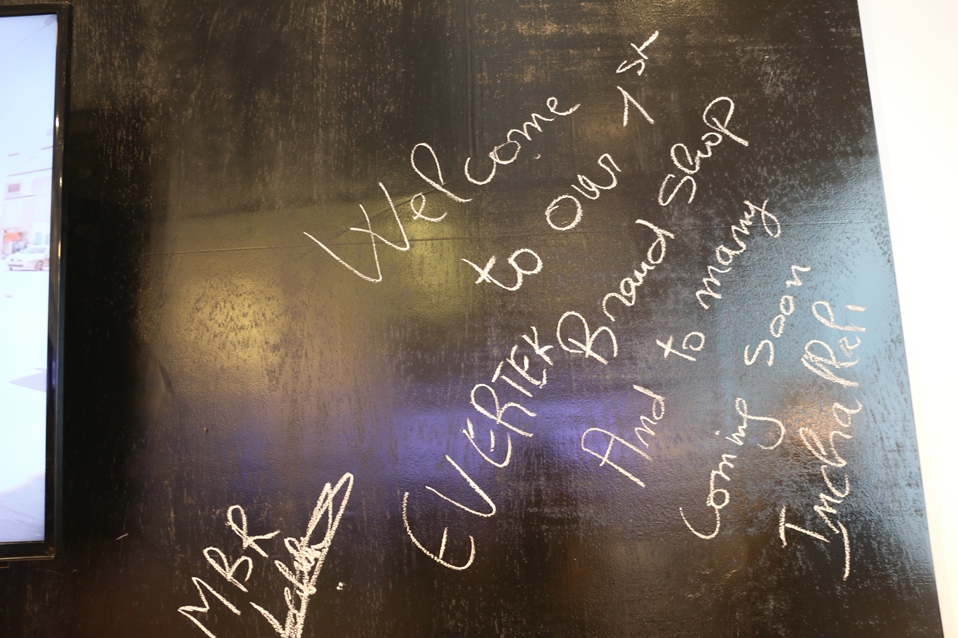 Welcome
to our 1st
EVERTEK Brand Shop
And to many
coming soon
Inchallah
MBR